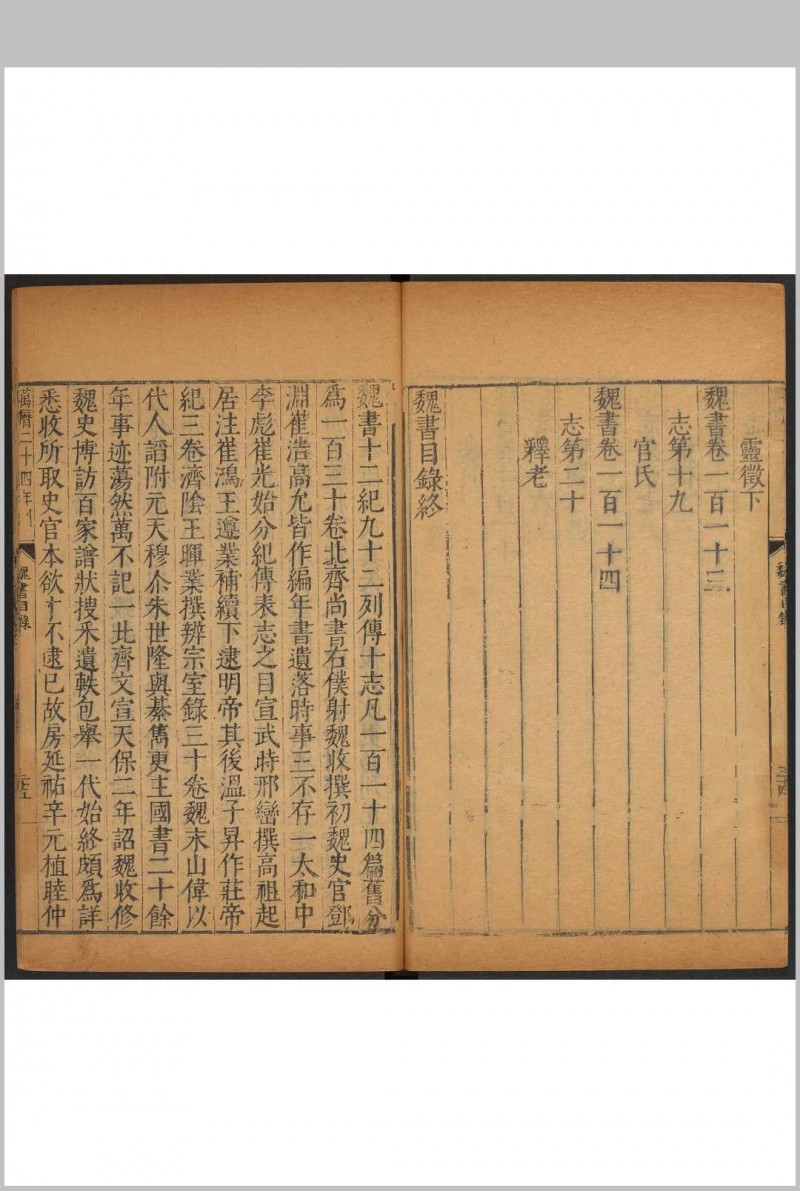 靈徵下
魏書卷一百一十三
志第十九
官氏
魏書卷一百一十四
志第二十
釋老
魏書目錄終
魏書目錄
魏書十二紀九十二列傳十志凡一百一十四篇舊分
爲一百三十卷北齊尚書右僕射魏收撰初魏史官鄧
淵崔浩高允皆作編年書遺落時事三不存一太和中
李彪崔光始分紀傳表志之目宣武時邢巒撰高祖起
居注崔鴻王遵業補續下逮明帝其後溫子昇作莊帝
紀三卷濟陰王暉業撰辨宗室錄三十卷魏末山偉以
代人諂附元天穆尒朱世隆與綦雋更主國書二十餘
年事迹蕩然萬不記一北齊文宣天保二年詔魏收修
魏史博訪百家譜狀搜采遺軼包舉一代始終頗爲詳
悉收所取史官本欲才不逮己故房延祐辛元植睦仲
萬曆二十四年刊
魏書目錄